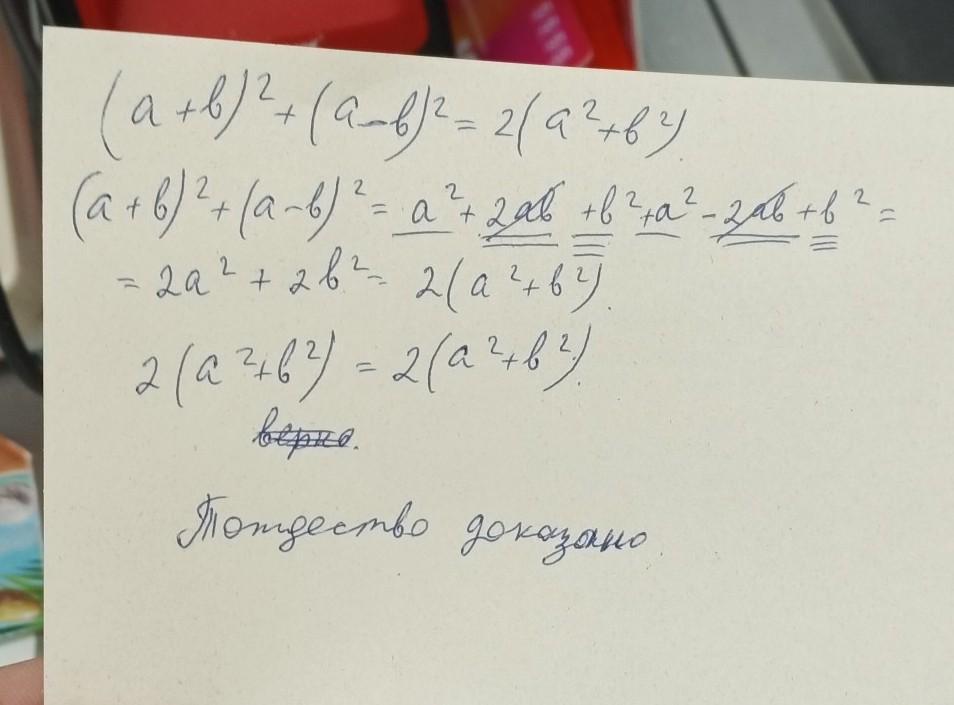 (a+b)²+(a-b)²=2(a²+b²)
(a+b)²+(a-b)²= a²+2ab+b²+a²-2ab+b²=
=2a²+2b²= 2(a²+b²).
2(a²+b²)=2(a²+b²).
верно.
Тождество доказано.